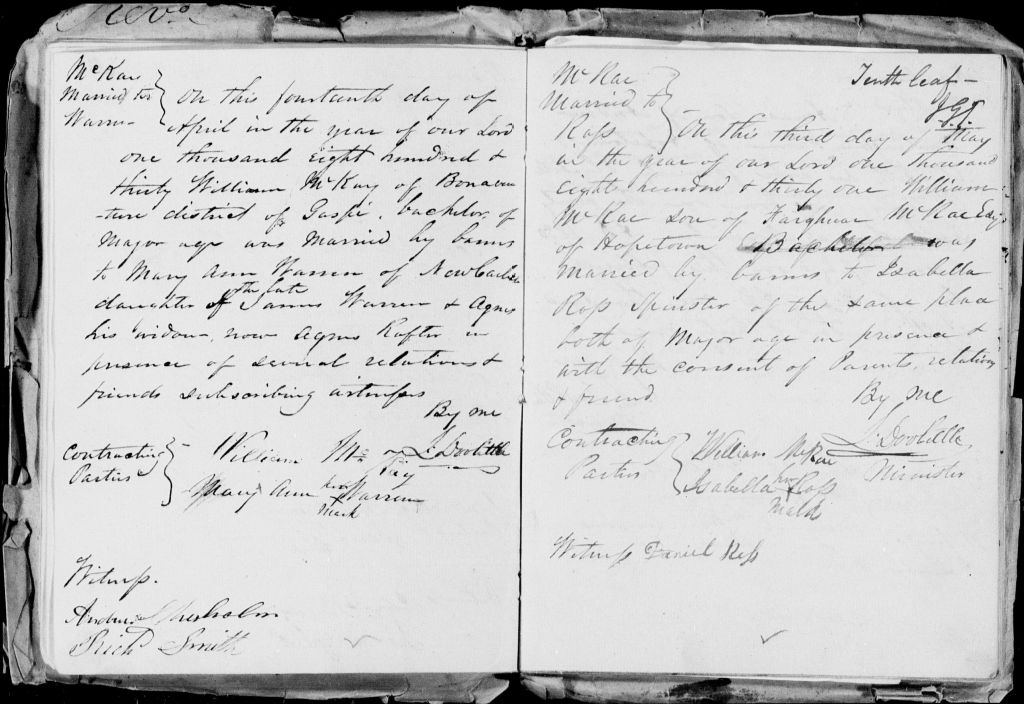 Revd
McRae
Married to
Warren
On this fourteenth day of
April in the year of our Lord
one thousand Eight hundred &
thirty William McKay of Bonaven
-ture district of Gaspé, bachelor, of
Major age was Married by banns
to Mary Ann Warren of New Carlisle
daughter of the late James Warren & Agnes
his widow, now Agnes Rafter in
presence of several relations &
friends subscribing witnesses
By me
Contracting
Parties
William Mc Kay
L. Doolittle
Mary Ann her Warren
x
Mark
Witness.
Andrew Chisholm
Richd Smith
McRae
Married to
Ross
Tenth leaf -
On this third day of May
in the year of our Lord one thousand
Eight hundred & thirty one William
McRae Son of Farghuar McRae Esq
of Hopetown Bachelor was
married by banns to Isabella
Ross Spinster of the same place
both of Major age in presence &
with the consent of Parents, relations
& friend
By me
Contracting
Parties
William McRae
L. Doolittle
Minister
Isabella her Ross
x
Mark
Witness Daniel Ross